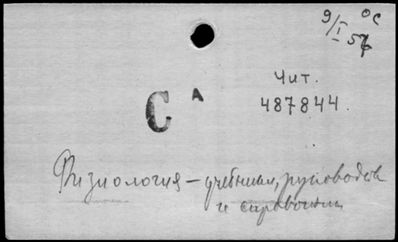 9/I 57 ОС
С А
Чит.
487844.
Физиология — учебники, руководства
и справочники